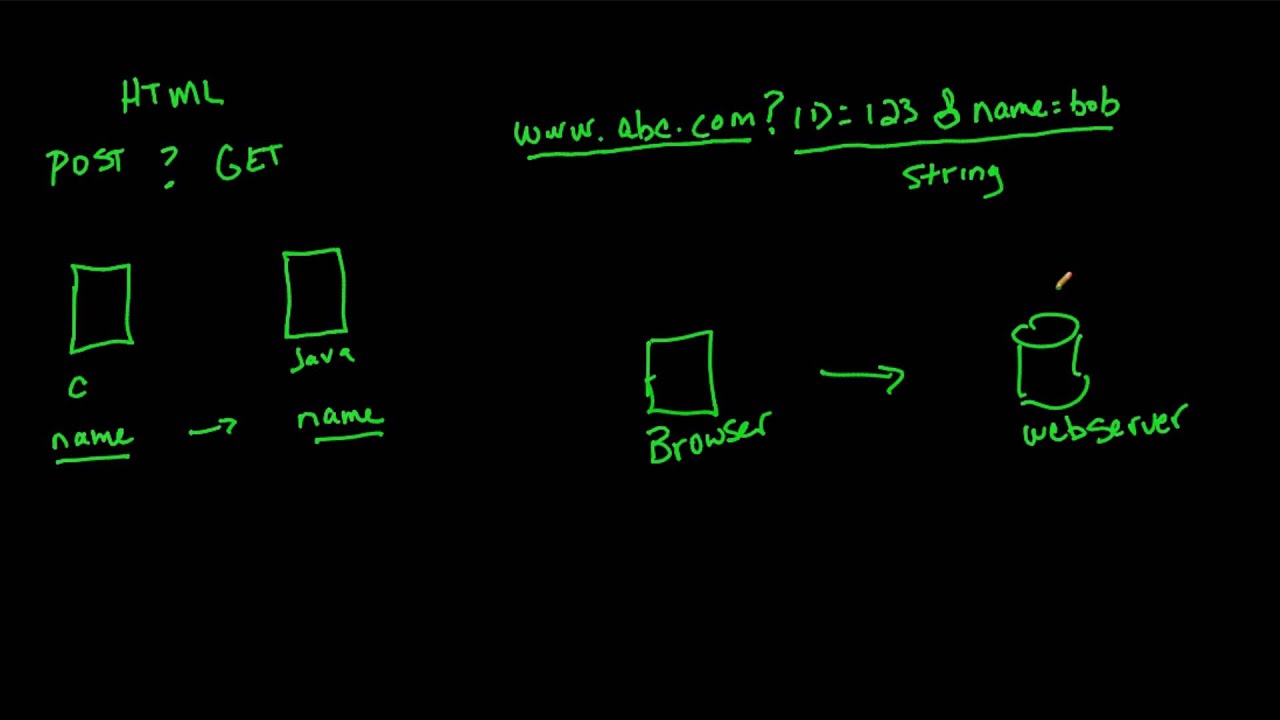 HTML
POST ? GET
www.abc.com? ID=123 & name=bob
string
Java
C
name → name
Browser
→
webserver